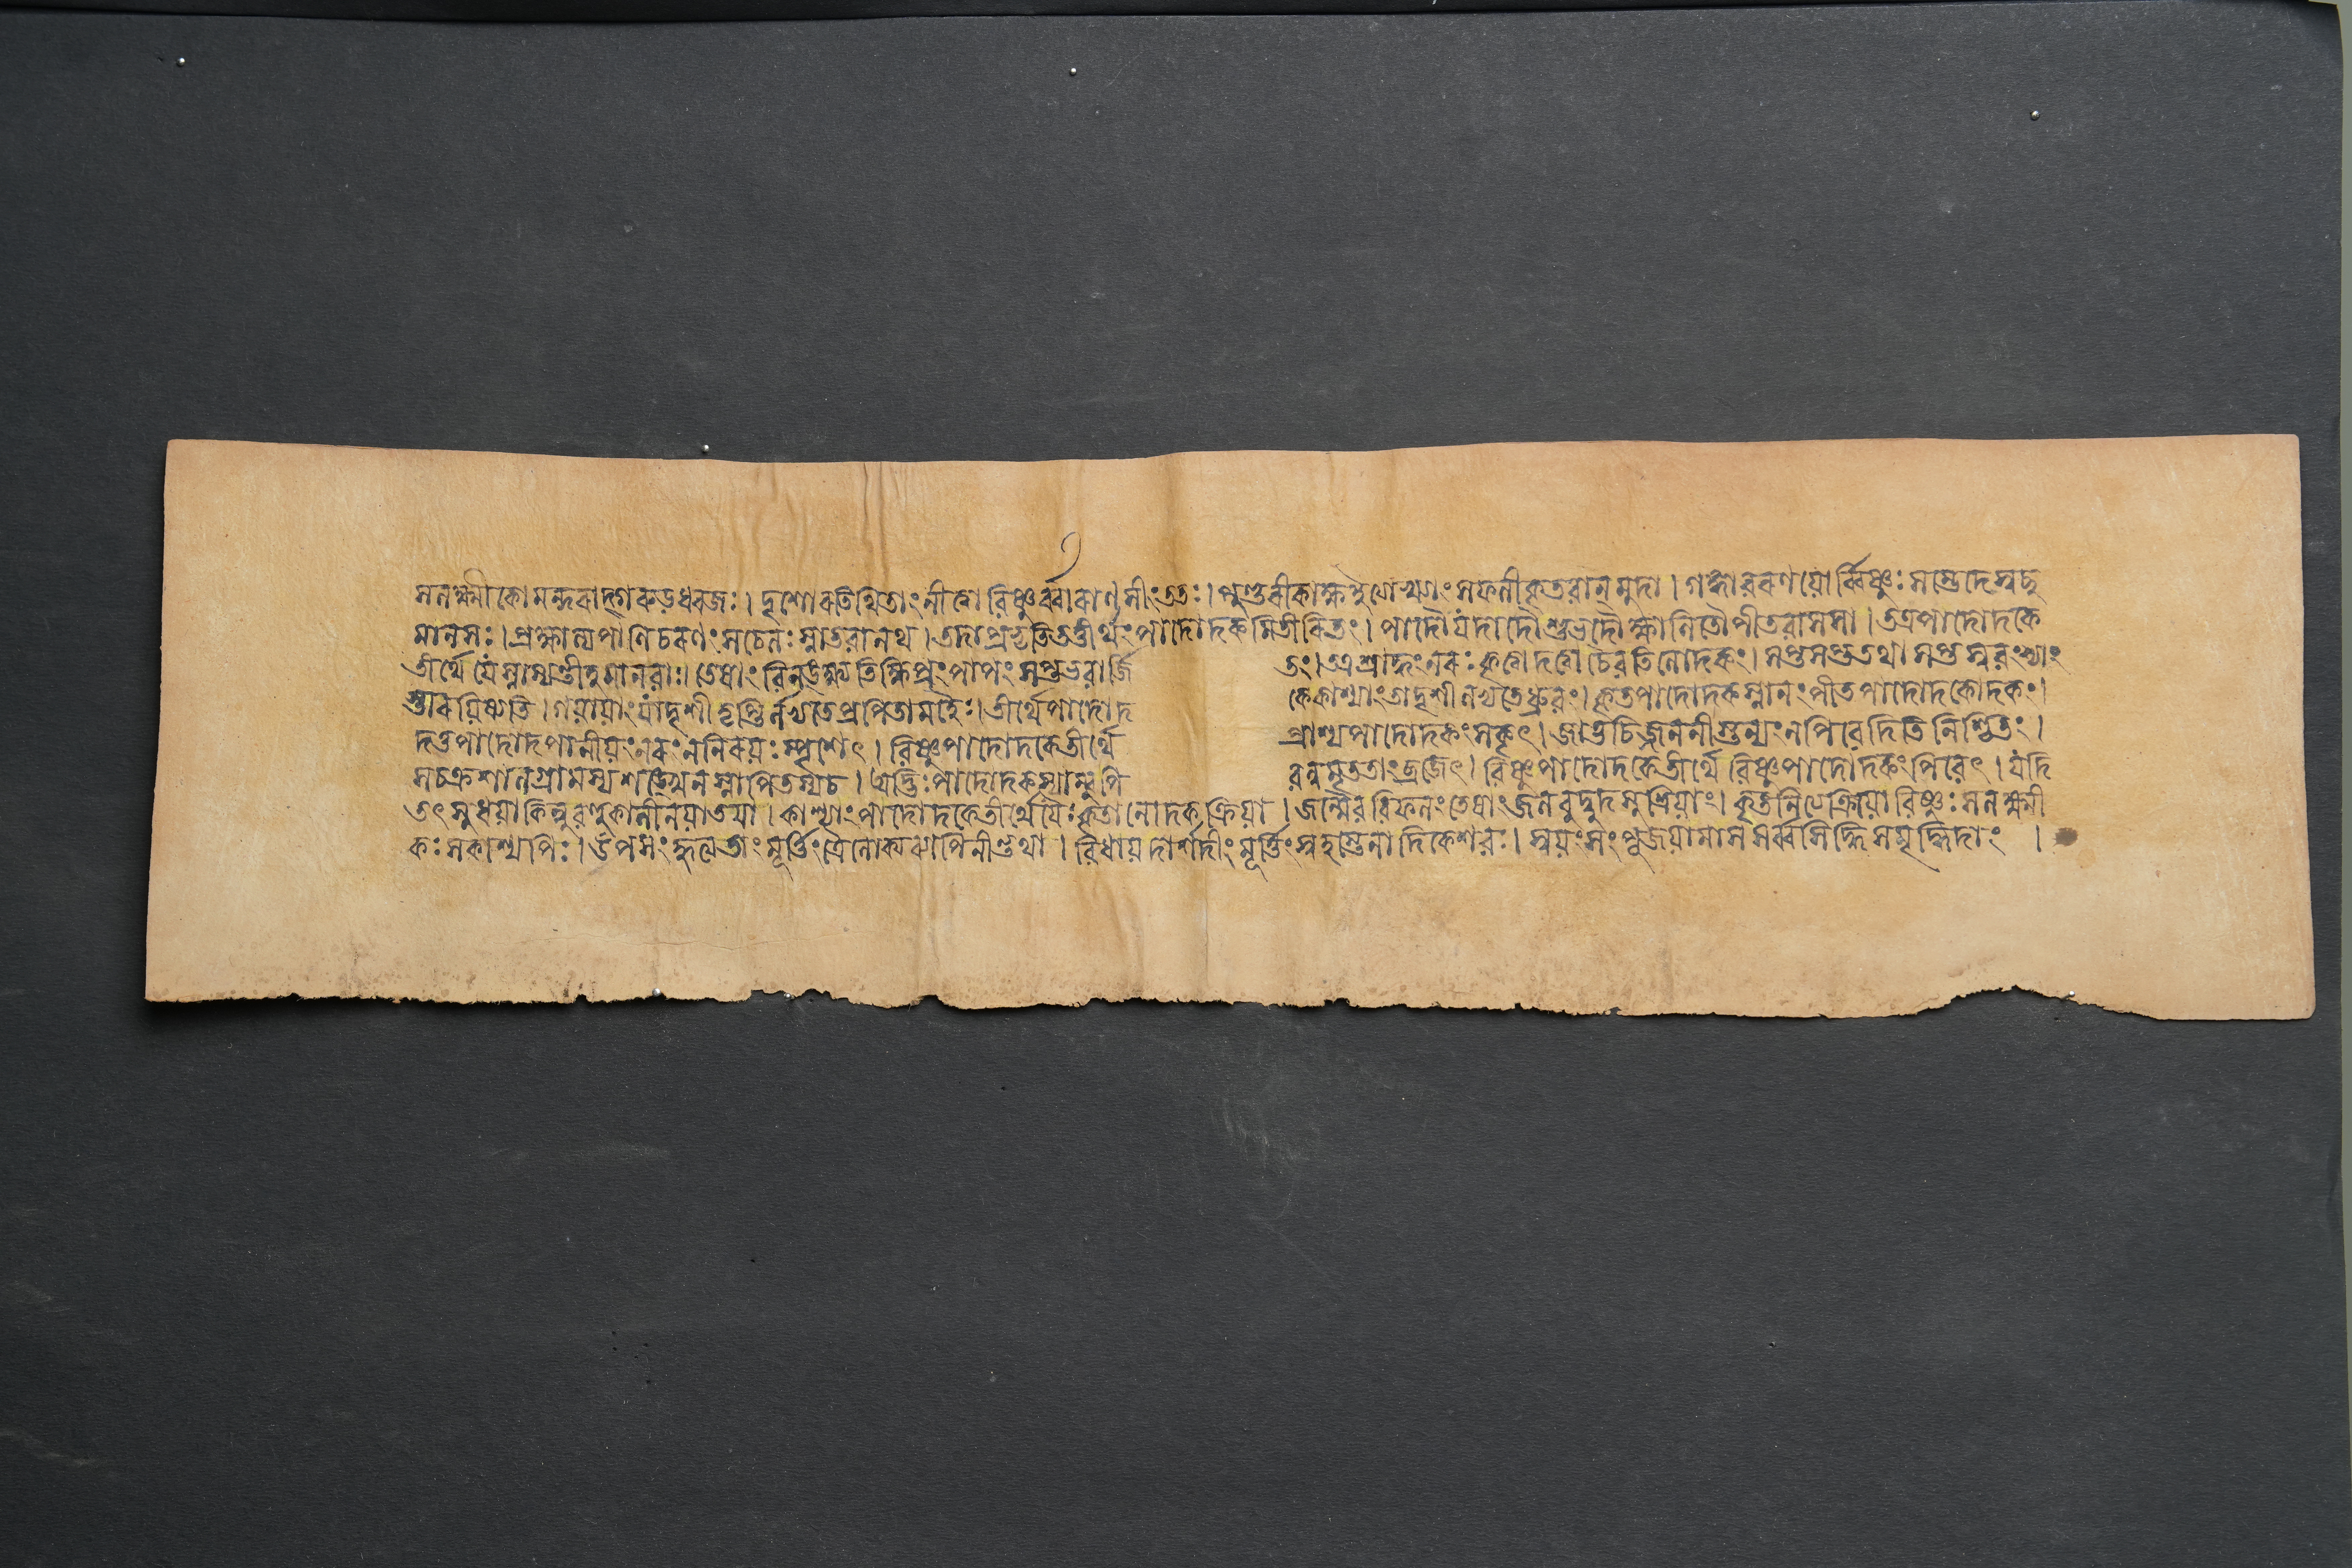 সলক্ষ্মীকো মন্দরাদ্গরুড়ধ্বজঃ । দৃশোরতিথিতাং নীত্বা বিষ্ণুর্ব্বারাণসীং ততঃ । পুণ্ডরীকাক্ষ সফলীকৃতবান্ মুদা । গঙ্গাবরণয়োর্ব্বিষ্ণুঃ সম্ভেদে স্বচ্ছ
মানসঃ । প্রক্ষাল্য পাণিচরণং সচেলঃ স্নাতবানথ । তদাপ্রভৃতি তত্তীর্থং পাদোদকমিতীরিতং । পাদৌ যদাদৌ শুভদৌ ক্ষালিতৌ পীতবাসসা । তত্র পাদোদকে
তীর্থে যে স্নাস্যন্তীহ মানবাঃ । তেষাং বিনঙ্ক্ষ্যতি ক্ষিপ্রং পাপং সপ্তভবার্জি তং । তত্র শ্রাদ্ধং নরঃ কৃত্বা দত্ত্বা চৈব তিলোদকং । সপ্ত সপ্ত তথা সপ্ত স্ববংশ্যাং
স্তারয়িষ্যতি । গয়ায়াং যাদৃশী তৃপ্তির্লভ্যতে প্রপিতামহৈঃ । তীর্থে পাদোদ কে কাশ্যাং তাদৃশী লভ্যতে ধ্রুবং । কৃতপাদোদকস্নানং পীতপাদোদকোদকং ।
দত্তপাদোদপানীয়ং নরং ন নিরয়ঃ স্পৃশেৎ । বিষ্ণুপাদোদকে তীর্থে প্রাশ্য পাদোদকং সকৃৎ । জাতুচিজ্জননীস্তন্যং ন পিবেদিতি নিশ্চিতং ।
সচক্রশালগ্রামস্য শঙ্খেন স্নাপিতস্য চ । অদ্ভিঃ পাদোদকস্যাম্বু পি বন্নমৃততাং ব্রজেৎ । বিষ্ণুপাদোদকে তীর্থে বিষ্ণুপাদোদকং পিবেৎ । যদি
তৎ সুধয়া কিন্নু বহুকালীনয়াতয়া । কাশ্যাং পাদোদকে তীর্থে যৈঃ কৃতা নোদকক্রিয়া । জন্মৈব বিফলং তেষাং জলবুদ্বুদসুশ্রিয়াং । কৃতনিত্যক্রিয়ো বিষ্ণুঃ সলক্ষ্মী
কঃ সকাশ্যপিঃ । উপসংহৃত্য তাং মূর্ত্তিং ত্রৈলোক্যব্যাপিনীন্তথা । বিধায় দার্শদীং মূর্ত্তিং স্বহস্তেনাদিকেশবঃ । স্বয়ং সংপূজয়ামাস সর্ব্বসিদ্ধিসমৃদ্ধিদাং ।